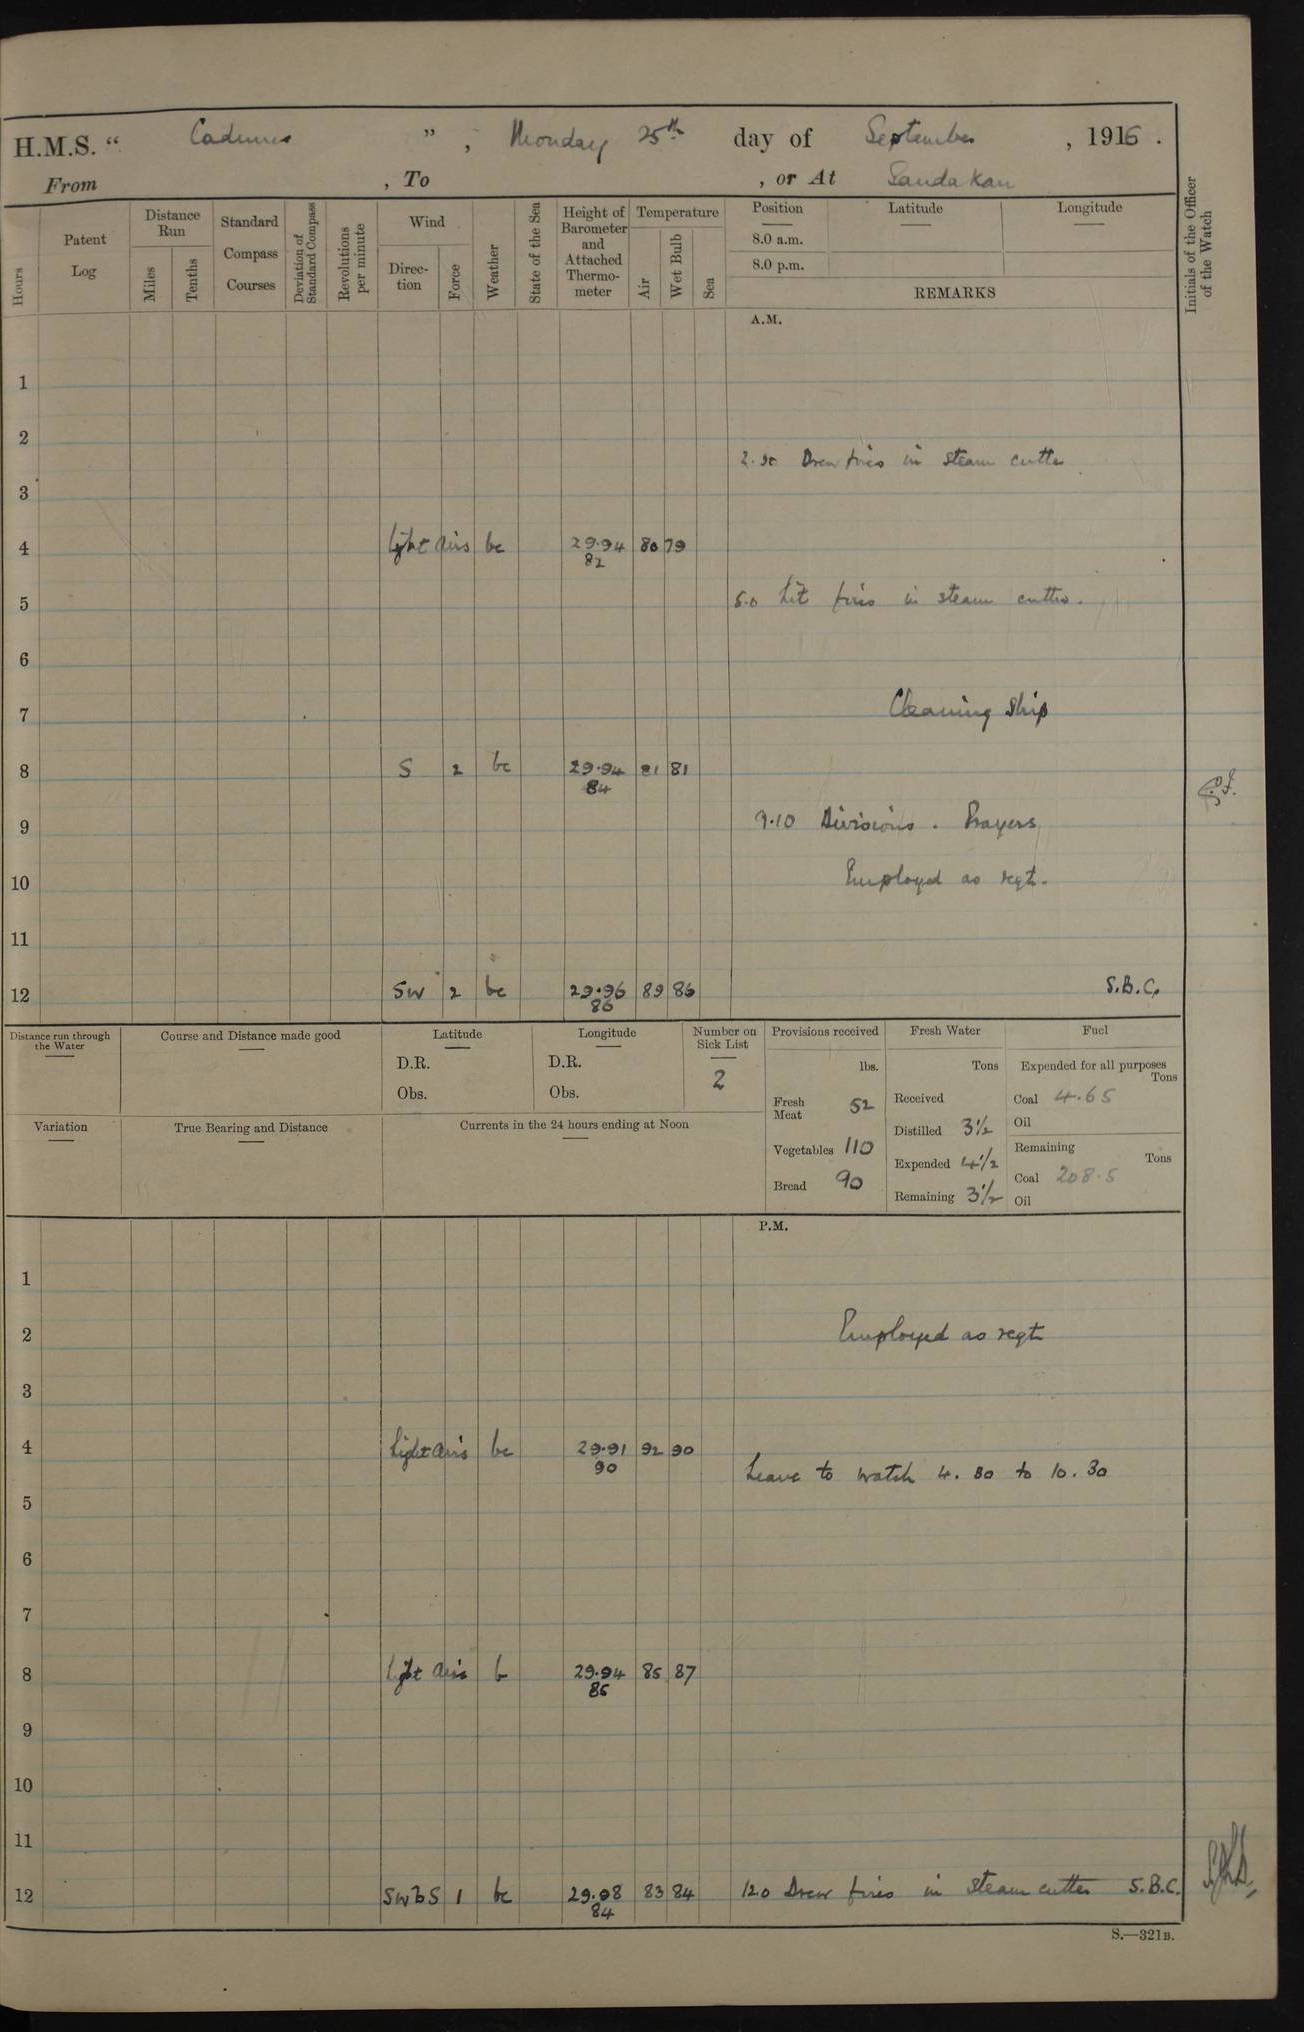 H.M.S. “ Cadmus ” , Monday 25th day of September , 1916 .
From , To , or At Sandakan
Hours
Patent Log
Distance Run
Miles
Tenths
Standard Compass Courses
Deviation of Standard Compass
Revolutions per minute
Wind
Direc-tion
Force
Weather
State of the Sea
Height of Barometer and Attached Thermo-meter
Temperature
Air
Wet Bulb
Sea
Position Latitude Longitude
8.0 a.m.
8.0 p.m.
REMARKS
Initials of the Officer of the Watch
A.M.
1
2
2.30 Drew fires in steam cutter
3
4 light airs bc 29.94 80 79
82
5 5.0 Lit fires in steam cutter.
6
7 Cleaning Ship
8 S 2 bc 29.94 81 81
84
9 9.10 Divisions . Prayers
10 Employed as reqt.
11
12 SW 2 bc 29.96 89 86 S.B.C.
86
Distance run through the Water
Course and Distance made good
Latitude
D.R.
Obs.
Longitude
D.R.
Obs.
Number on Sick List
2
Provisions received
lbs.
Fresh Meat 52
Vegetables 110
Bread 90
Fresh Water
Tons
Received
Distilled 3½
Expended 4½
Remaining 3½
Fuel
Expended for all purposes
Tons
Coal 4.65
Oil
Remaining
Tons
Coal 208.5
Oil
Variation
True Bearing and Distance
Currents in the 24 hours ending at Noon
P.M.
1
2 Employed as reqt
3
4 Light airs bc 29.91 92 90
90
Leave to watch 4.30 to 10.30
5
6
7
8 light airs b 29.94 85 87
85
9
10
11
12 SWbS 1 bc 29.98 83 84 12.0 Drew fires in steam cutter S.B.C.
84
S.—321B.